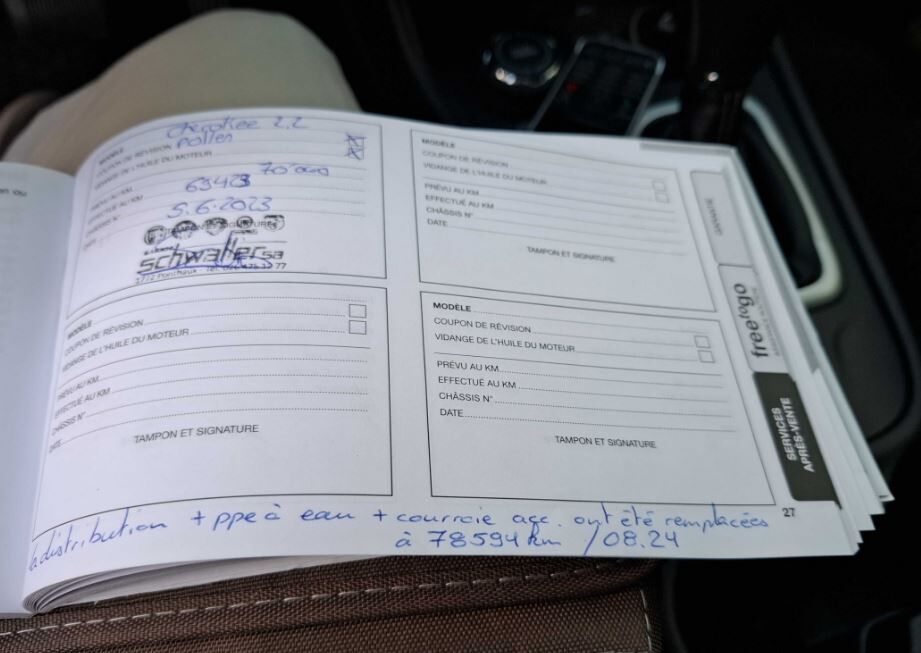 Cherokee 2.2
MODÈLE
COUPON DE RÉVISION Pollen
VIDANGE DE L'HUILE DU MOTEUR
70'000
PRÉVU AU KM
EFFECTUÉ AU KM 63423
CHÂSSIS N°
DATE 5.6.2023
TAMPON ET SIGNATURE
schwaller sa
MODÈLE
COUPON DE RÉVISION
VIDANGE DE L'HUILE DU MOTEUR
PRÉVU AU KM
EFFECTUÉ AU KM
CHÂSSIS N°
DATE
TAMPON ET SIGNATURE
MODÈLE
COUPON DE RÉVISION
VIDANGE DE L'HUILE DU MOTEUR
PRÉVU AU KM
EFFECTUÉ AU KM
CHÂSSIS N°
DATE
TAMPON ET SIGNATURE
MODÈLE
COUPON DE RÉVISION
VIDANGE DE L'HUILE DU MOTEUR
PRÉVU AU KM
EFFECTUÉ AU KM
CHÂSSIS N°
DATE
TAMPON ET SIGNATURE
GARANTIE
freetogo
SERVICES
APRÈS-VENTE
27
la distribution + ppe à eau + courroie acc. ont été remplacées
à 78594 km /08.24